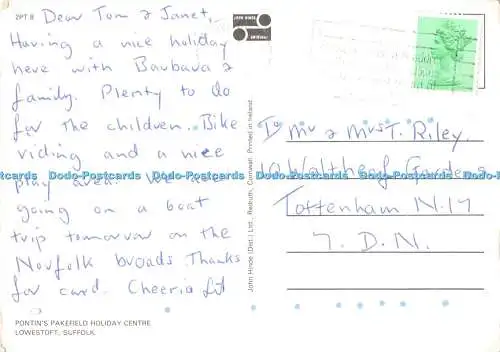 2PT.8
Dear Tom & Janet,
Having a nice holiday
here with Barbara &
family. Plenty to do
for the children. Bike
riding and a nice
play area. We are
going on a boat
trip tomorrow on the
Norfolk broads Thanks
for card. Cheerio
PONTIN'S PAKEFIELD HOLIDAY CENTRE
LOWESTOFT, SUFFOLK
John Hinde (Dist.) Ltd., Redruth, Cornwall. Printed in Ireland.
JOHN HINDE
ORIGINAL
To Mr & Mrs T. Riley.
10 Waltheof Gardens
Tottenham N.17
7. D.N.
Dodo-Postcards Dodo-Postcards Dodo-Postcards Dodo-Postcards